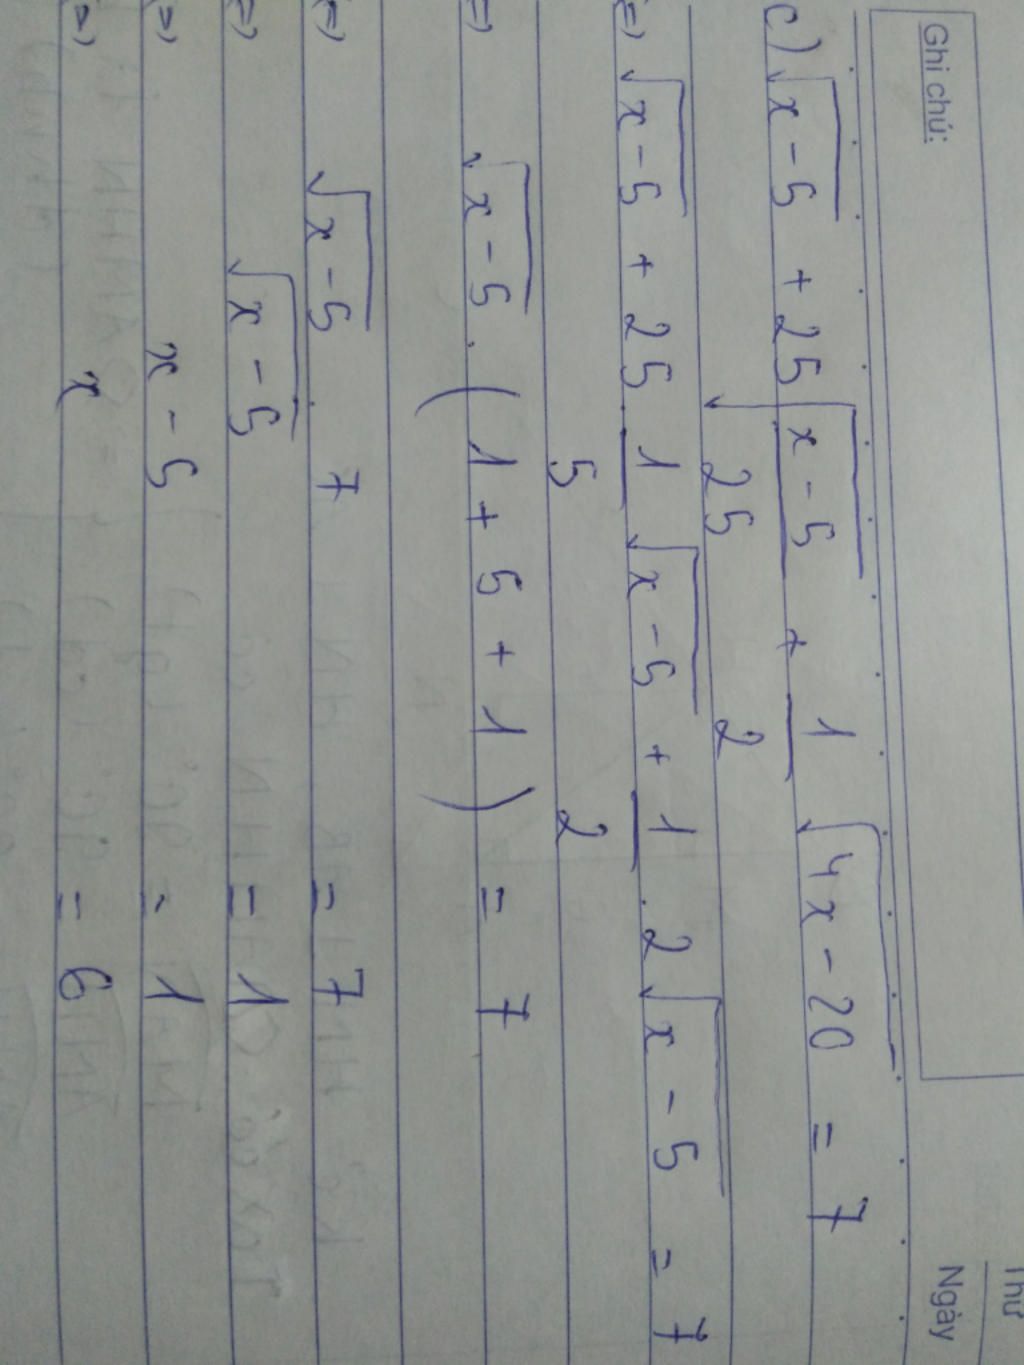 Ghi chú:
Thứ
Ngày
c) √(x-5) + 25√((x-5)/25) + 1/2 √(4x-20) = 7
(=) √(x-5) + 25 . 1/5 √(x-5) + 1/2 . 2√(x-5) = 7
(=) √(x-5) . (1 + 5 + 1) = 7
(=) √(x-5) . 7 = 7
(=) √(x-5) = 1
(=) x - 5 = 1
(=) x = 6